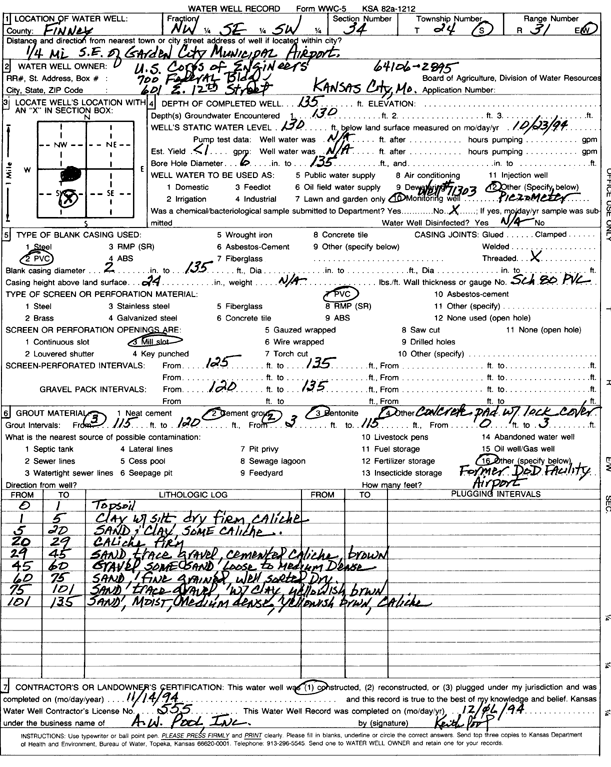 WATER WELL RECORD Form WWC-5 KSA 82a-1212
1 LOCATION OF WATER WELL: Fraction Section Number Township Number Range Number
County: Finney NW ¼ SE ¼ SW ¼ 34 T 24 S R 31 E/W
Distance and direction from nearest town or city street address of well if located within city?
1/4 mi S.E. of Garden City Municipal Airport.
2 WATER WELL OWNER: U.S. Corps of Engineers 64106-2895
RR#, St. Address, Box #: 700 Federal Bldg. Board of Agriculture, Division of Water Resources
City, State, ZIP Code: 601 E. 12th Street Kansas City, Mo. Application Number:
3 LOCATE WELL'S LOCATION WITH AN "X" IN SECTION BOX:
N
NW NE
W E
SW SE
S
1 Mile
X
4 DEPTH OF COMPLETED WELL 135 ft. ELEVATION:
Depth(s) Groundwater Encountered 1 130 ft. 2 ft. 3 ft.
WELL'S STATIC WATER LEVEL 130 ft. below land surface measured on mo/day/yr 10/23/94
Pump test data: Well water was N/A ft. after hours pumping gpm
Est. Yield <1 gpm: Well water was N/A ft. after hours pumping gpm
Bore Hole Diameter 6 in. to 135 ft., and in. to ft.
WELL WATER TO BE USED AS: 5 Public water supply 8 Air conditioning 11 Injection well
1 Domestic 3 Feedlot 6 Oil field water supply 9 Dewatering 12 Other (Specify below)
2 Irrigation 4 Industrial 7 Lawn and garden only 10 Monitoring well #71303 Piezometer
Was a chemical/bacteriological sample submitted to Department? Yes No X; If yes, mo/day/yr sample was submitted Water Well Disinfected? Yes N/A No
5 TYPE OF BLANK CASING USED: 5 Wrought iron 8 Concrete tile CASING JOINTS: Glued Clamped
1 Steel 3 RMP (SR) 6 Asbestos-Cement 9 Other (specify below) Welded
2 PVC 4 ABS 7 Fiberglass Threaded X
Blank casing diameter 2 in. to 135 ft., Dia in. to ft., Dia in. to ft.
Casing height above land surface 24 in., weight N/A lbs./ft. Wall thickness or gauge No. Sch 80 PVC
TYPE OF SCREEN OR PERFORATION MATERIAL: 7 PVC 10 Asbestos-cement
1 Steel 3 Stainless steel 5 Fiberglass 8 RMP (SR) 11 Other (specify)
2 Brass 4 Galvanized steel 6 Concrete tile 9 ABS 12 None used (open hole)
SCREEN OR PERFORATION OPENINGS ARE: 5 Gauzed wrapped 8 Saw cut 11 None (open hole)
1 Continuous slot 3 Mill slot 6 Wire wrapped 9 Drilled holes
2 Louvered shutter 4 Key punched 7 Torch cut 10 Other (specify)
SCREEN-PERFORATED INTERVALS: From 125 ft. to 135 ft., From ft. to ft.
From ft. to ft., From ft. to ft.
GRAVEL PACK INTERVALS: From 120 ft. to 135 ft., From ft. to ft.
From ft. to ft., From ft. to ft.
6 GROUT MATERIAL: 1 Neat cement 2 Cement grout 3 Bentonite 4 Other Concrete pad w/ lock cover
Grout Intervals: From 3 115 ft. to 120 ft., From 2 3 ft. to 115 ft., From 0 ft. to 3 ft.
What is the nearest source of possible contamination: 10 Livestock pens 14 Abandoned water well
1 Septic tank 4 Lateral lines 7 Pit privy 11 Fuel storage 15 Oil well/Gas well
2 Sewer lines 5 Cess pool 8 Sewage lagoon 12 Fertilizer storage 16 Other (specify below)
3 Watertight sewer lines 6 Seepage pit 9 Feedyard 13 Insecticide storage Former DOD Facility
Direction from well? How many feet? Airport
FROM TO LITHOLOGIC LOG FROM TO PLUGGING INTERVALS
0 1 Topsoil
1 5 Clay w/ silt dry firm, caliche
5 20 Sand; clay, some caliche.
20 29 Caliche firm
29 45 Sand, trace gravel, cemented caliche, brown
45 60 Gravel some sand, loose to medium dense
60 75 Sand, fine grained, well sorted dry.
75 101 Sand, trace gravel, w/ clay, yellowish brwn
101 135 Sand, moist, medium dense, yellowish brwn, caliche
7 CONTRACTOR'S OR LANDOWNER'S CERTIFICATION: This water well was (1) constructed, (2) reconstructed, or (3) plugged under my jurisdiction and was
completed on (mo/day/year) 11/14/94 and this record is true to the best of my knowledge and belief. Kansas
Water Well Contractor's License No. 555 This Water Well Record was completed on (mo/day/yr) 12/06/94
under the business name of A.W. Pool Inc. by (signature) Keith Pool
INSTRUCTIONS: Use typewriter or ball point pen. PLEASE PRESS FIRMLY and PRINT clearly. Please fill in blanks, underline or circle the correct answers. Send top three copies to Kansas Department
of Health and Environment, Bureau of Water, Topeka, Kansas 66620-0001. Telephone: 913-296-5545. Send one to WATER WELL OWNER and retain one for your records.
OFFICE USE ONLY
T
R
E/W
SEC.
¼
¼
¼